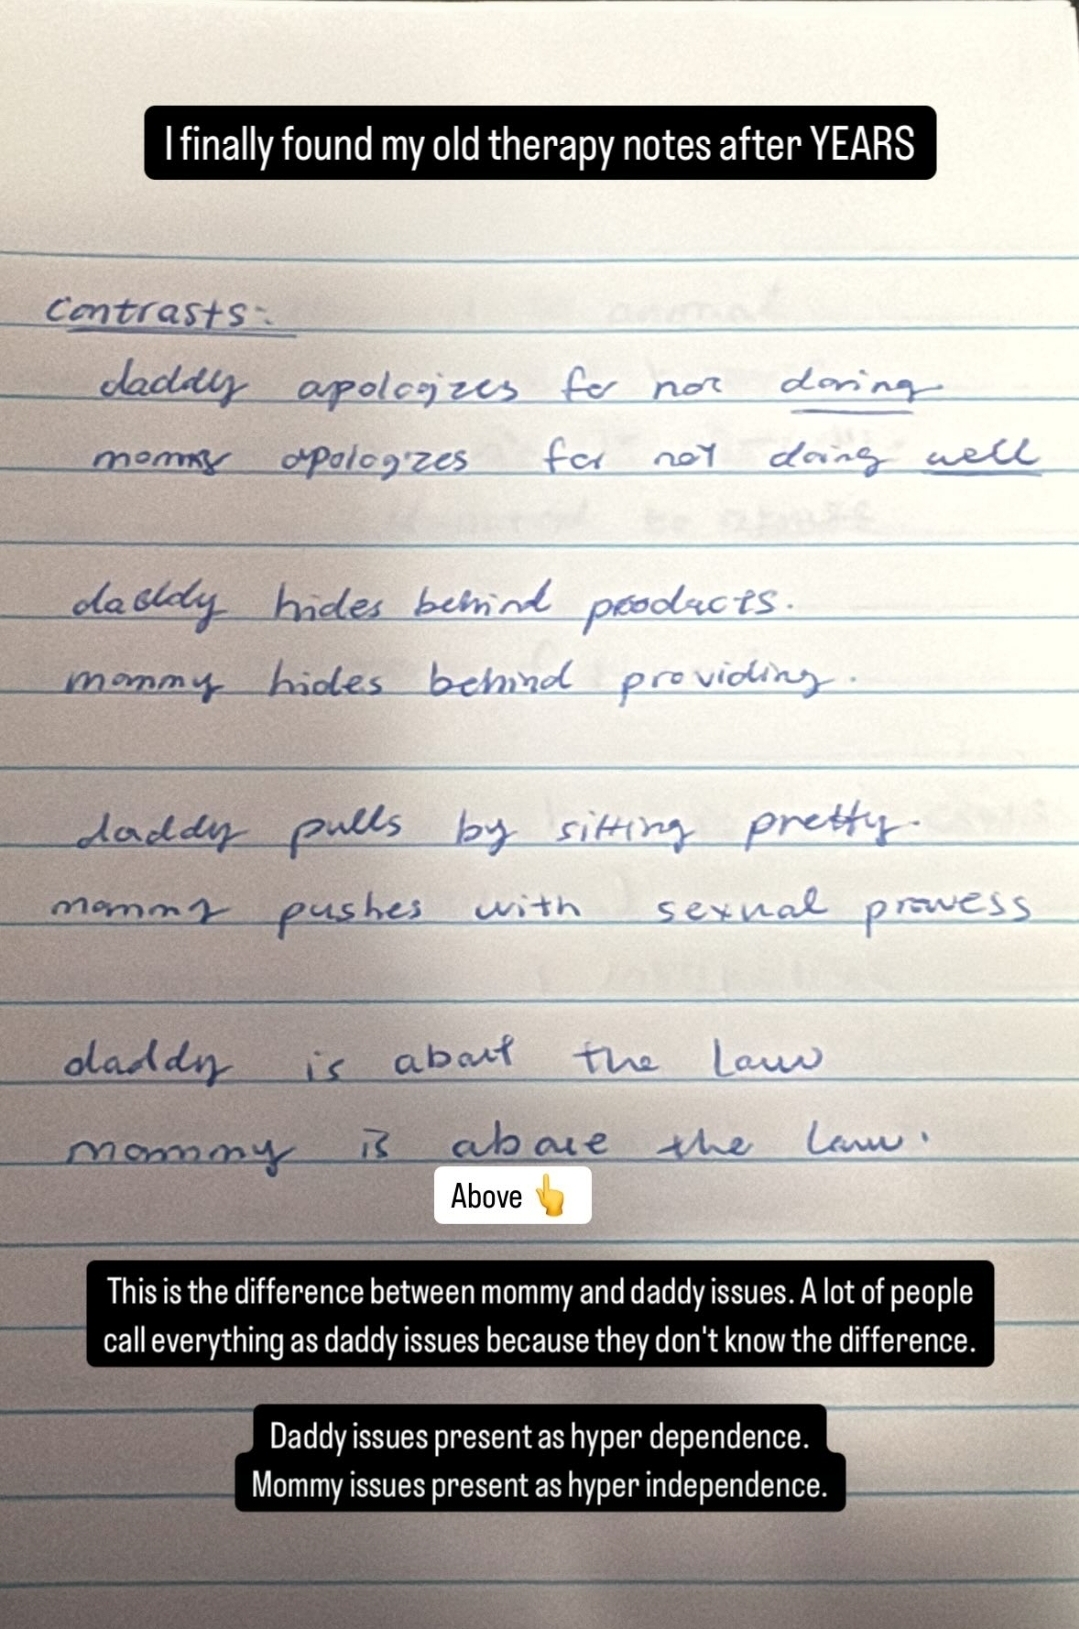 I finally found my old therapy notes after YEARS
Contrasts:
daddy apologizes for not doing
mommy apologizes for not doing well
daddy hides behind products.
mommy hides behind providing.
daddy pulls by sitting pretty.
mommy pushes with sexual prowess
daddy is about the law
mommy is above the law.
Above 👆
This is the difference between mommy and daddy issues. A lot of people
call everything as daddy issues because they don't know the difference.
Daddy issues present as hyper dependence.
Mommy issues present as hyper independence.